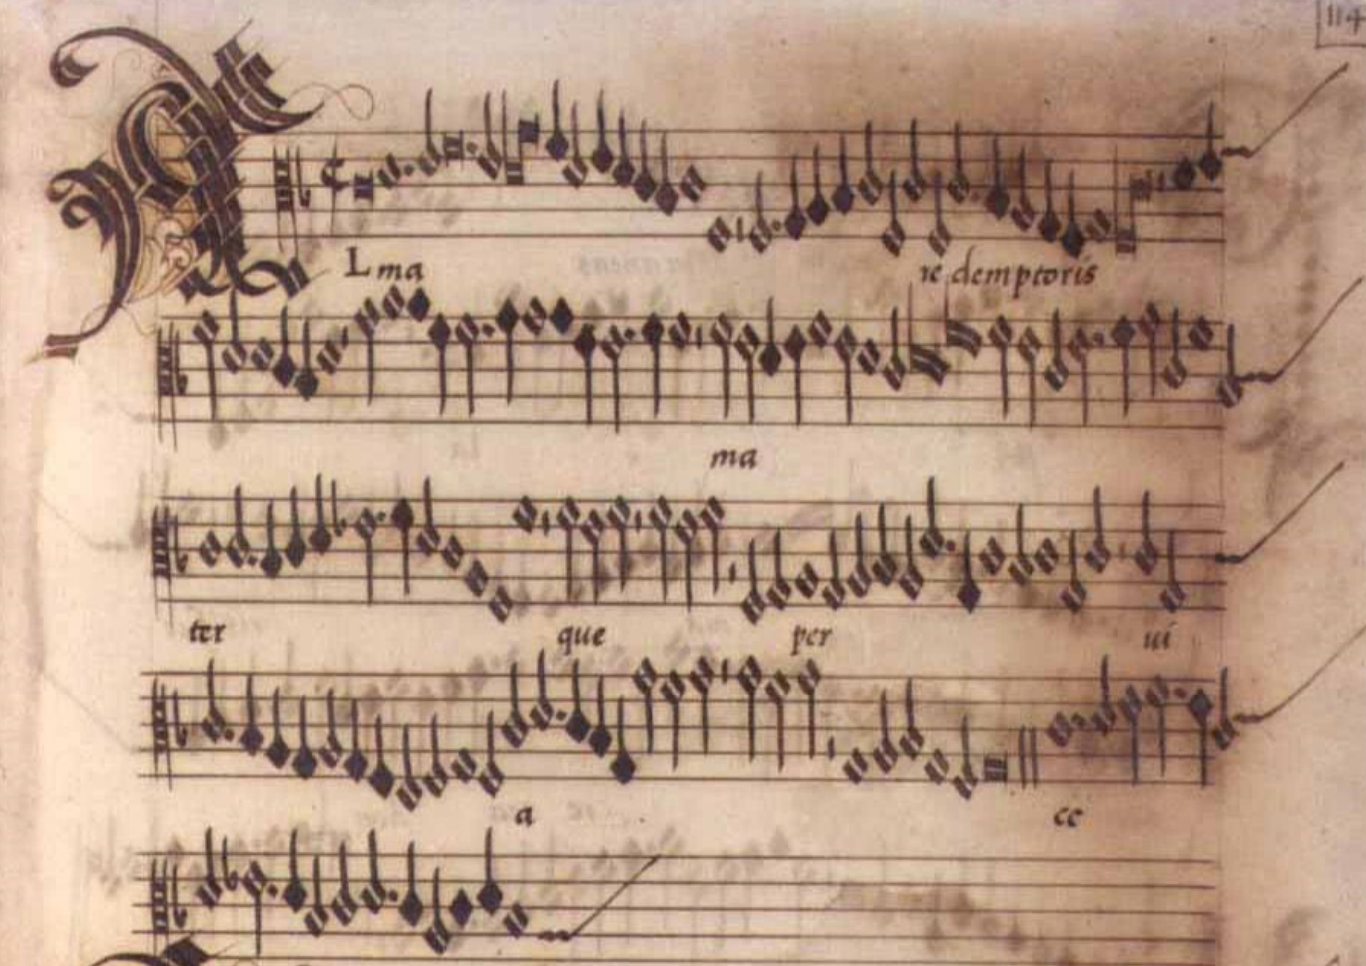 114
ALma redemptoris
ma
ter que per ui
a ce